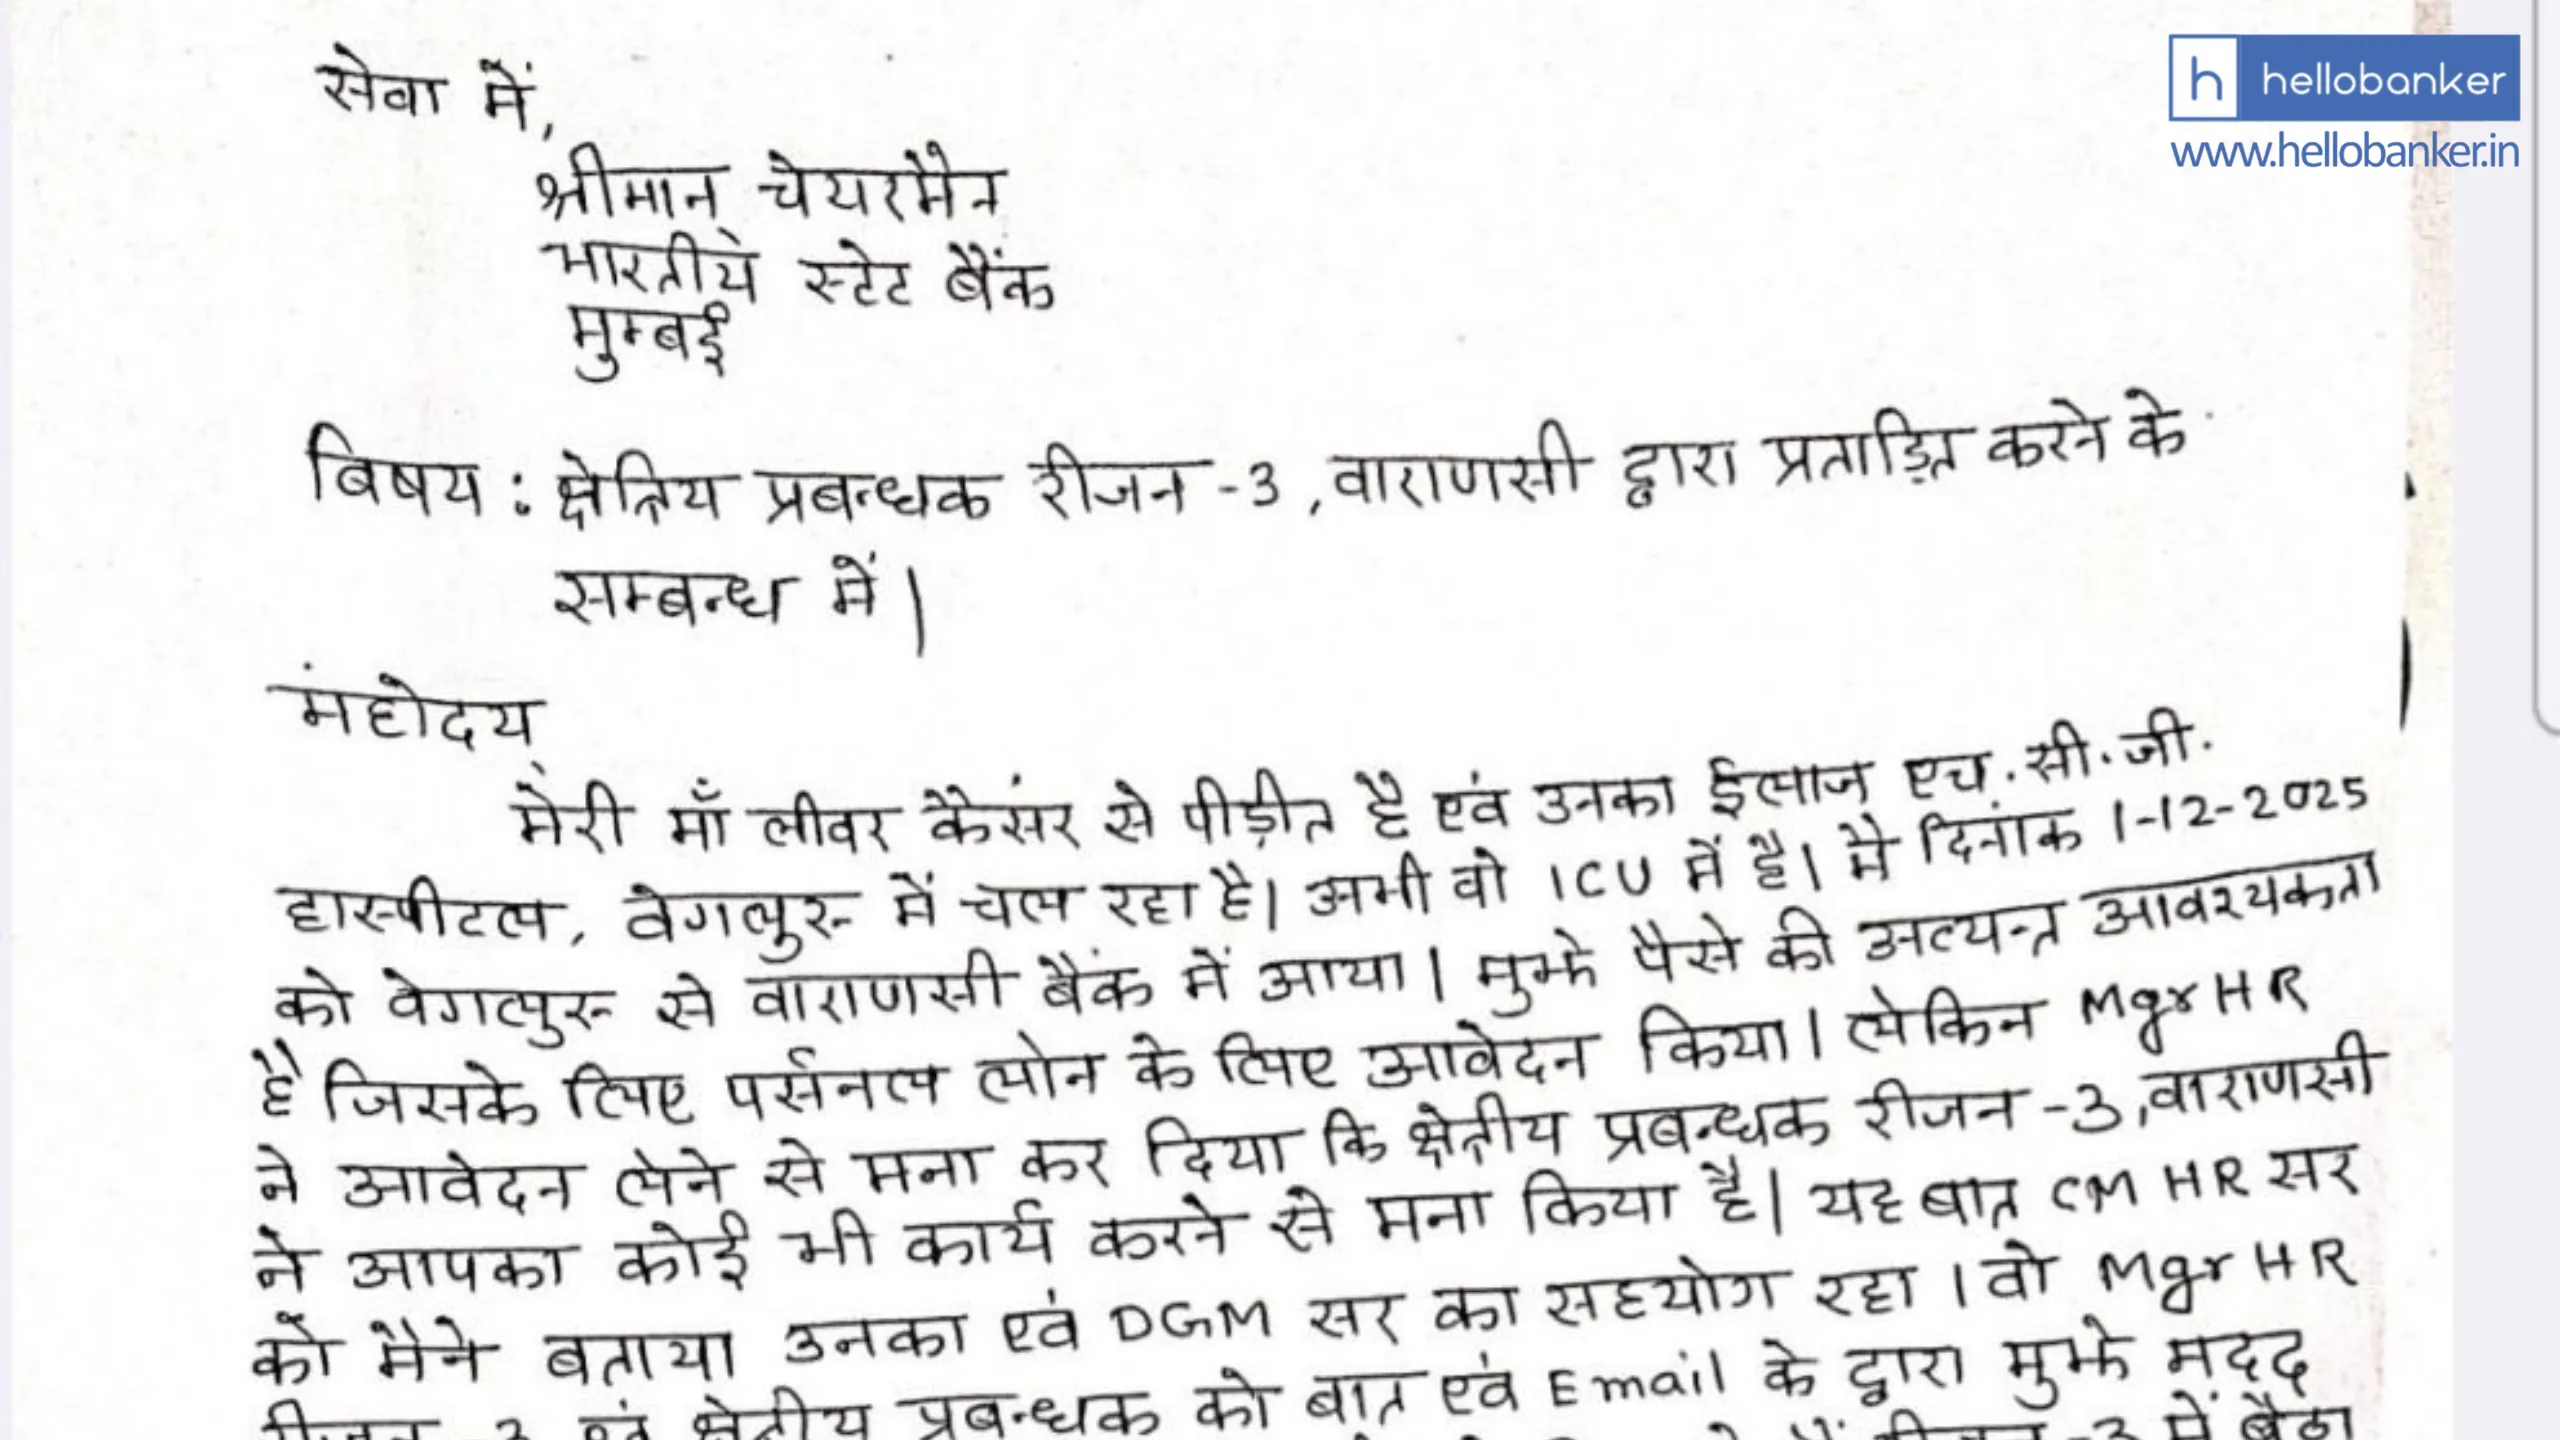 सेवा में,
h hellobanker
www.hellobanker.in
श्रीमान् चेयरमैन
भारतीय स्टेट बैंक
मुम्बई
बिषय : क्षेत्रिय प्रबन्धक रीजन -3, वाराणसी द्वारा प्रताड़ित करने के
सम्बन्ध में |
मंहोदय,
मेरी माँ लीवर कैसंर से पीड़ीत है एवं उनका ईलाज एच.सी.जी.
हास्पीटल, वेगलुरू में चल रहा है। अभी वो ICU में है। मै दिनांक 1-12-2025
को वेगलुरू से वाराणसी बैंक में आया। मुझे पैसे की अत्यन्त आवश्यकता
है जिसके लिए पर्सनल लोन के लिए आवेदन किया। लेकिन Mgr HR
ने आवेदन लेने से मना कर दिया कि क्षेत्रीय प्रबन्धक रीजन -3, वाराणसी
ने आपका कोई भी कार्य करने से मना किया है। यह बात CM HR सर
को मैने बताया उनका एवं DGM सर का सहयोग रहा । वो Mgr HR
रीजन -3 एवं क्षेत्रीय प्रबन्धक को बात एवं Email के द्वारा मुझे मदद
में रीजन -3 में बैठा